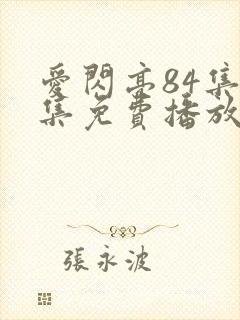 愛閃亭84集
集免費播放
張永波